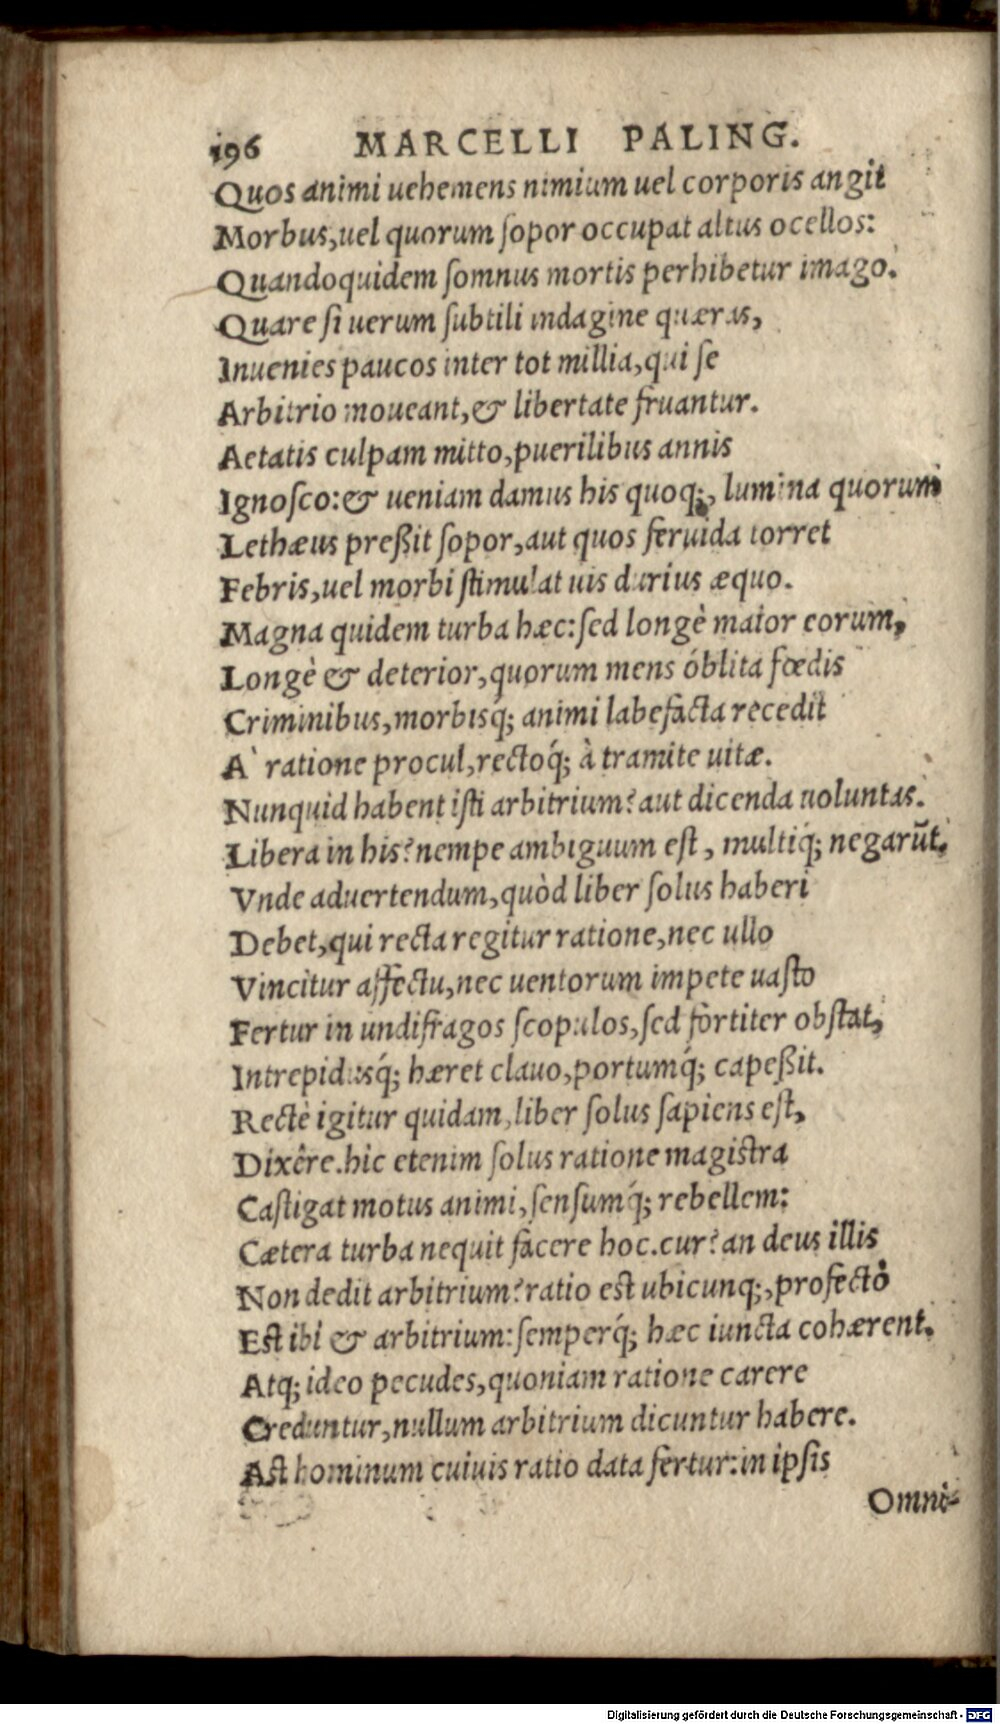 196 MARCELLI PALING.
Quos animi uehemens nimium uel corporis angit
Morbus, uel quorum ſopor occupat altus ocellos:
Quandoquidem ſomnus mortis perhibetur imago.
Quare ſi uerum ſubtili indagine quæras,
Inuenies paucos inter tot millia, qui ſe
Arbitrio moueant, & libertate fruantur.
Aetatis culpam mitto, puerilibus annis
Ignoſco: & ueniam damus his quoq;, lumina quorum
Lethæus preßit ſopor, aut quos feruida torret
Febris, uel morbi ſtimulat uis durius æquo.
Magna quidem turba hæc: ſed longè maior eorum,
Longè & deterior, quorum mens oblita fœdis
Criminibus, morbisq́; animi labefacta recedit
A` ratione procul, rectoq́; à tramite uitæ.
Nunquid habent iſti arbitrium? aut dicenda uoluntas.
Libera in his? nempe ambiguum eſt, multiq́; negarūt.
Vnde aduertendum, quòd liber ſolus haberi
Debet, qui recta regitur ratione, nec ullo
Vincitur affectu, nec uentorum impete uaſto
Fertur in undifragos ſcopulos, ſed fortiter obſtat,
Intrepidusq́; hæret clauo, portumq́; capeßit.
Rectè igitur quidam, liber ſolus ſapiens eſt,
Dixêre. hic etenim ſolus ratione magiſtra
Caſtigat motus animi, ſenſumq́; rebellem:
Cætera turba nequit facere hoc. cur? an deus illis
Non dedit arbitrium? ratio eſt ubicunq;, profectò
Eſt ibi & arbitrium: ſemperq́; hæc iuncta cohærent.
Atq; ideo pecudes, quoniam ratione carere
Creduntur, nullum arbitrium dicuntur habere.
Aſt hominum cuiuis ratio data fertur: in ipſis
Omni-
Digitalisierung gefördert durch die Deutsche Forschungsgemeinschaft - DFG